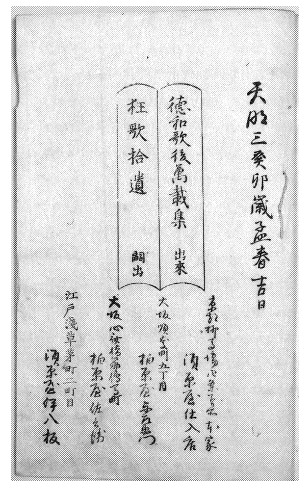 天明三癸卯歳孟春吉日
徳和歌後萬載集 出來
狂歌拾遺 嗣出
須原屋仕入店
大坂順慶町九丁目
柏原屋
大坂心斎橋筋
柏原屋佐兵衛
江戸浅草茅町二町目
須原屋伊八板